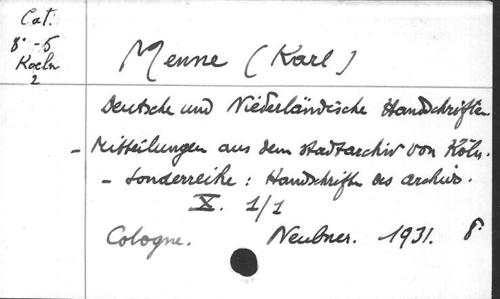 Cat:
8° - 5
Koeln
2
Menne (Karl)
Deutsche und Niederländische Handschriften
- Mitteilungen aus dem Stadtarchiv von Köln.
- Sonderreihe : Handschriften des archivs.
X. 1/1
Cologne. Neubner. 1931. 8°